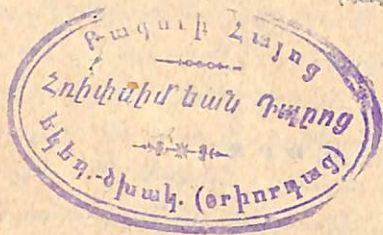 Բագուի Հայոց
Հռիփսիմեան Դպրոց
եկեղ.-ծխակ. (օրիորդաց)